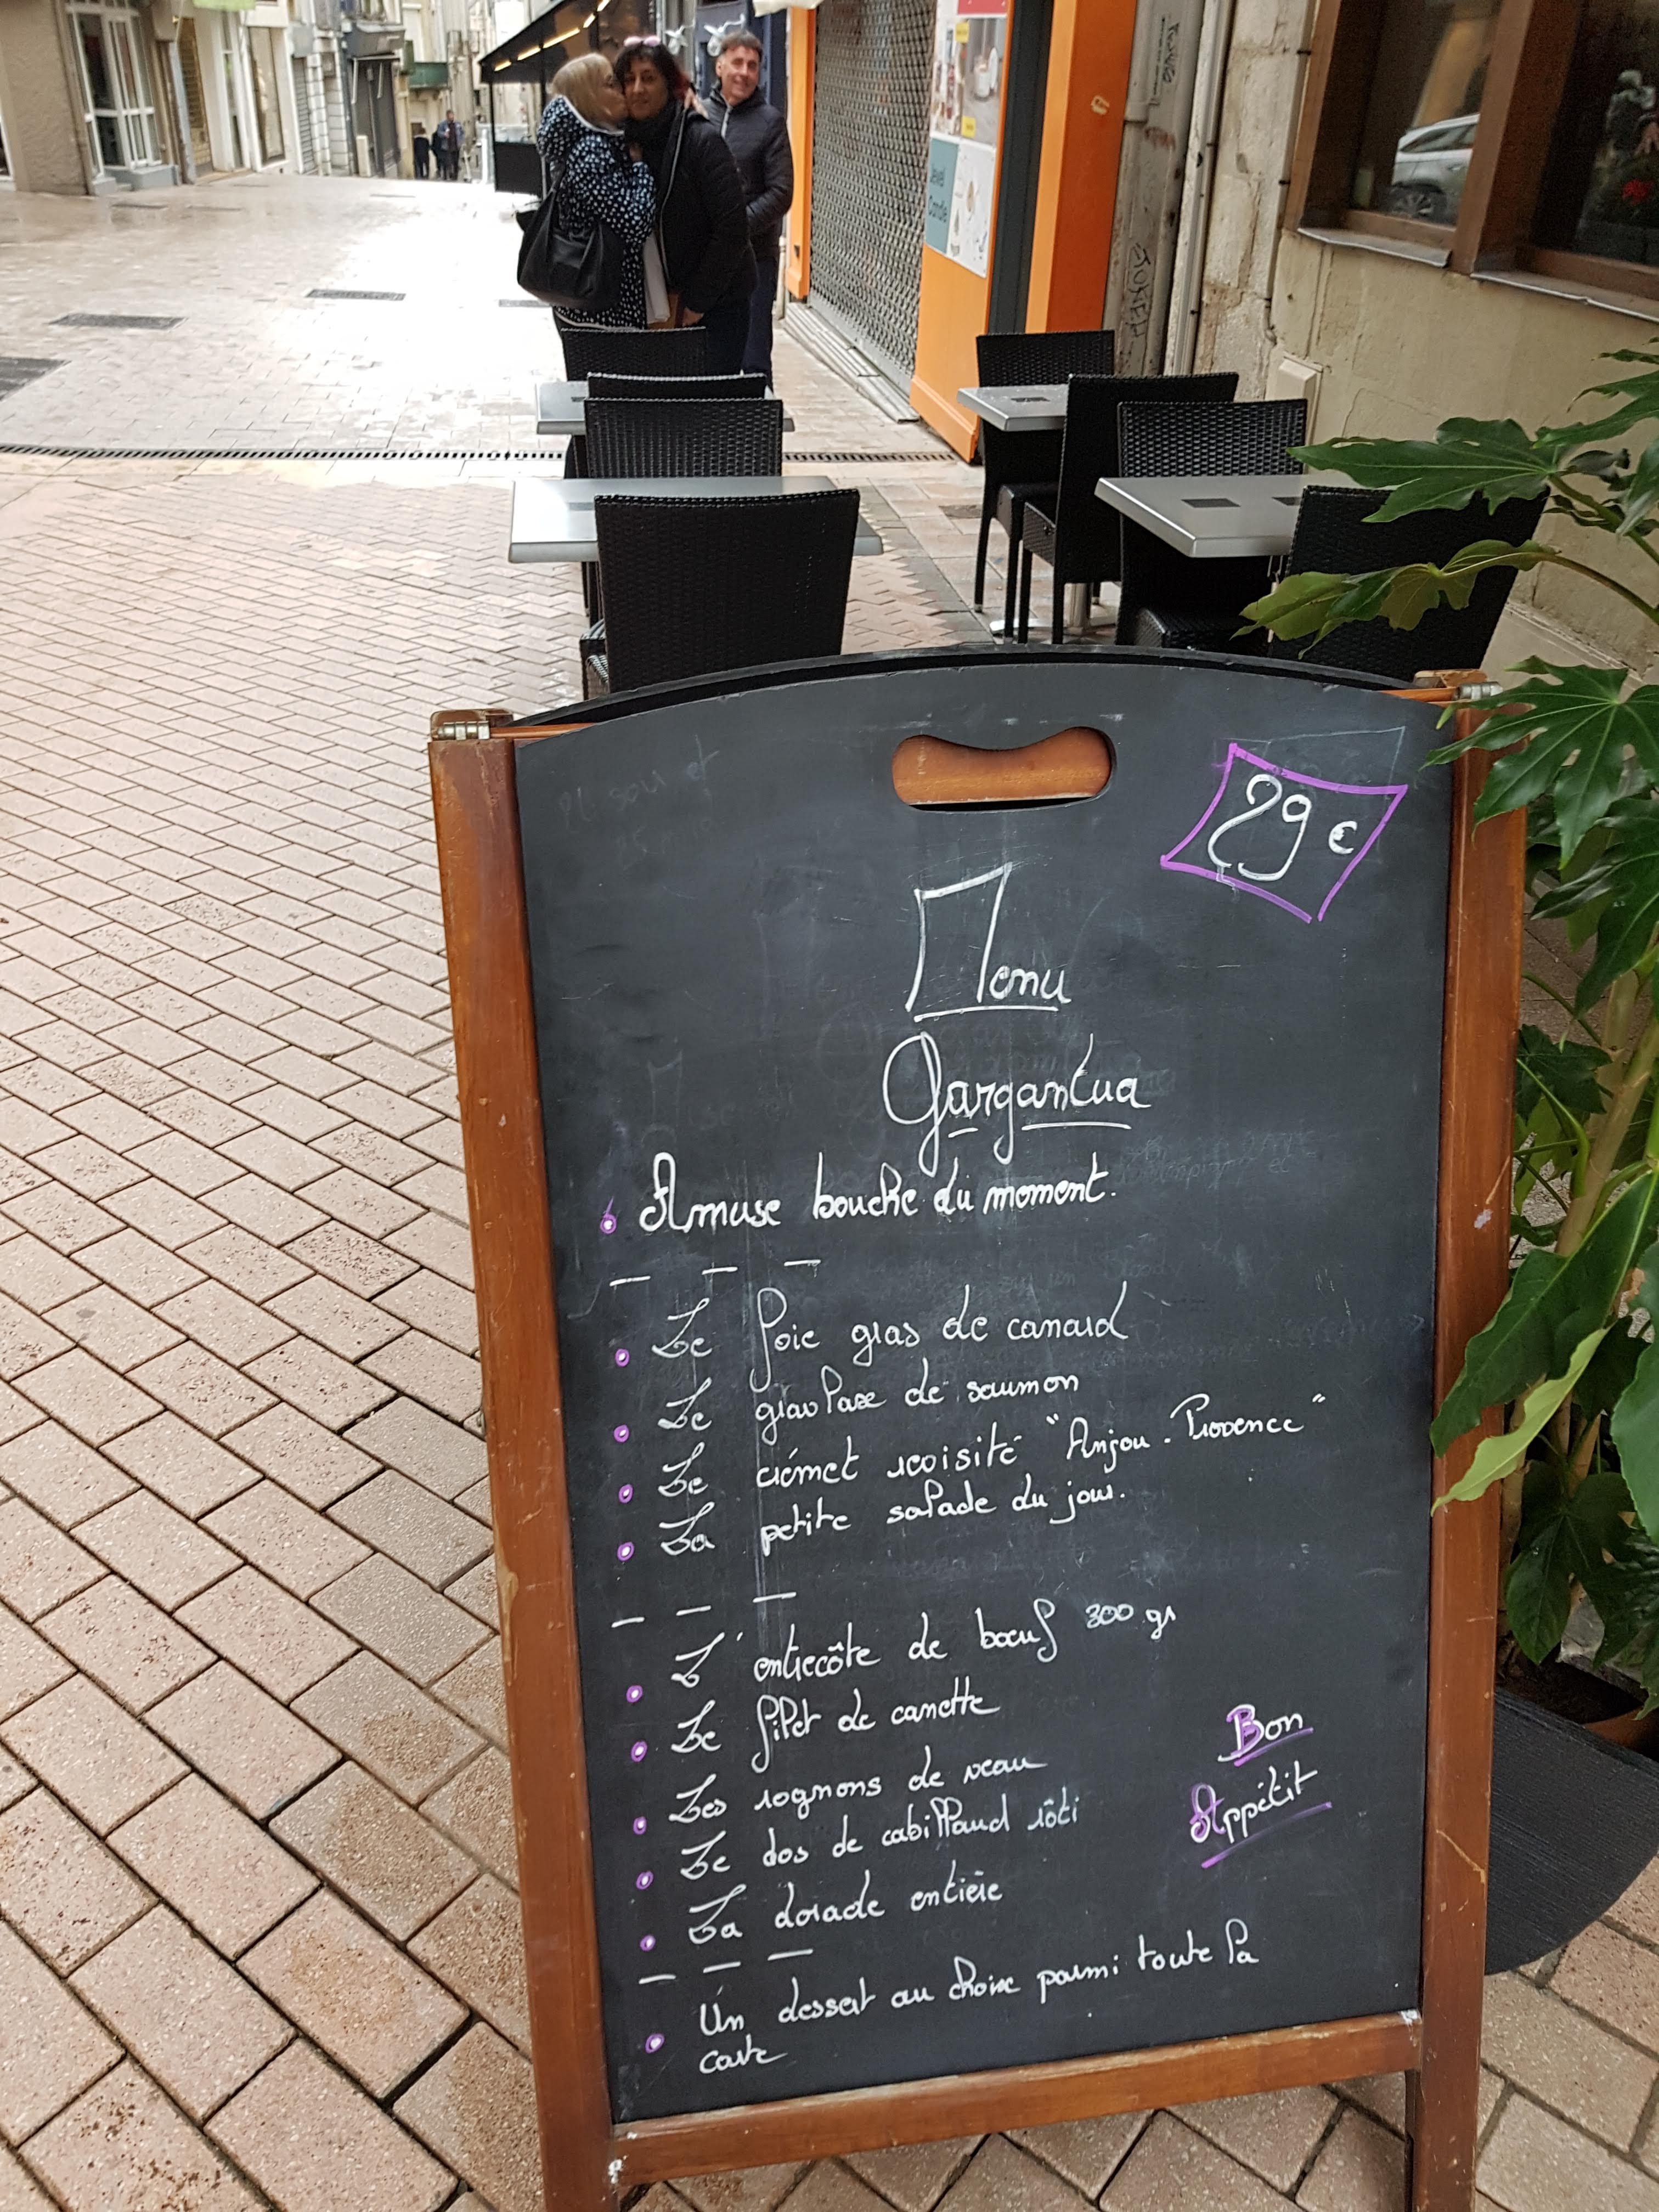 Jewel
Candle
29 €
Menu
Gargantua
Amuse bouche du moment.
Le foie gras de canard
Le gravlaxe de saumon
Le crémet revisité "Anjou-Provence"
La petite salade du jour.
L'entrecôte de bœuf 300 gr
Le filet de canette
Les rognons de veau
Le dos de cabillaud rôti
La dorade entière
Bon
Appétit
Un dessert au choix parmi toute la
carte